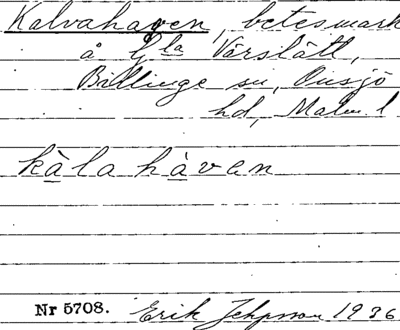 Kalvahagen, betesmark
å Gla Vårslätt,
Billinge sn, Onsjö
hd, Malm. l
kàla hàven
Nr 5708. Erik Jeppsson 1936